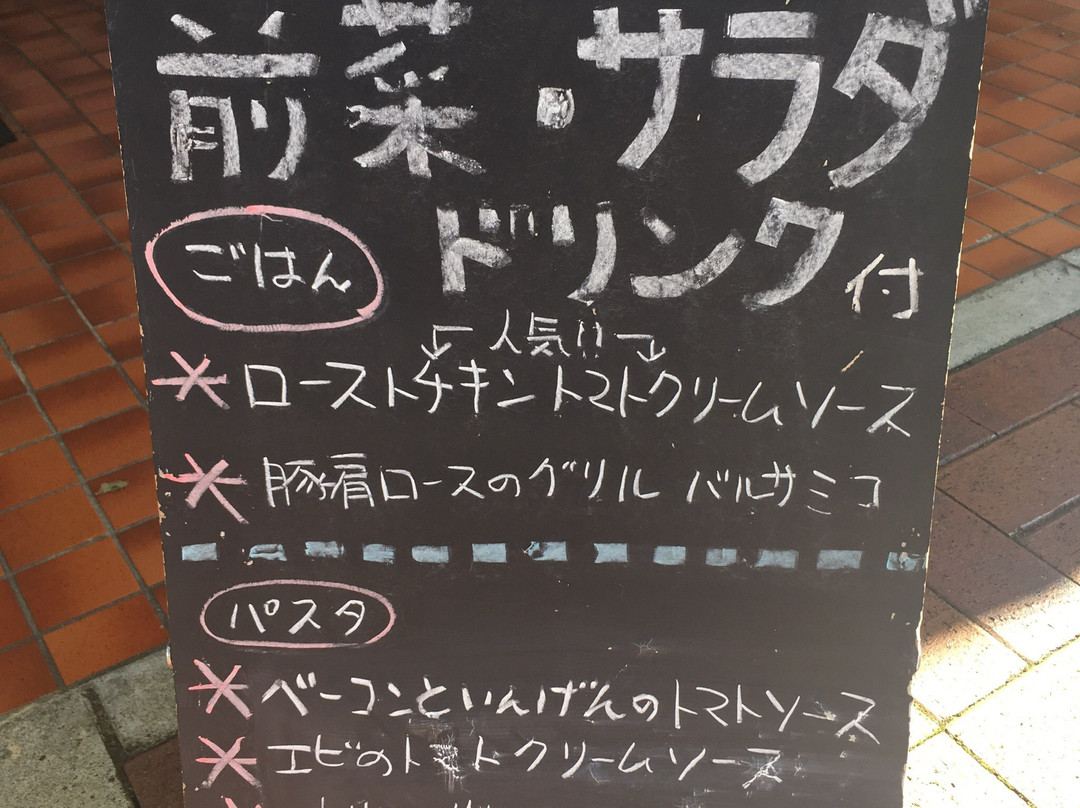 前菜・サラダ
ドリンク付
ごはん
←人気!!→
*ローストチキントマトクリームソース
*豚肩ロースのグリル バルサミコ
パスタ
*ベーコンといんげんのトマトソース
*エビのトマトクリームソース